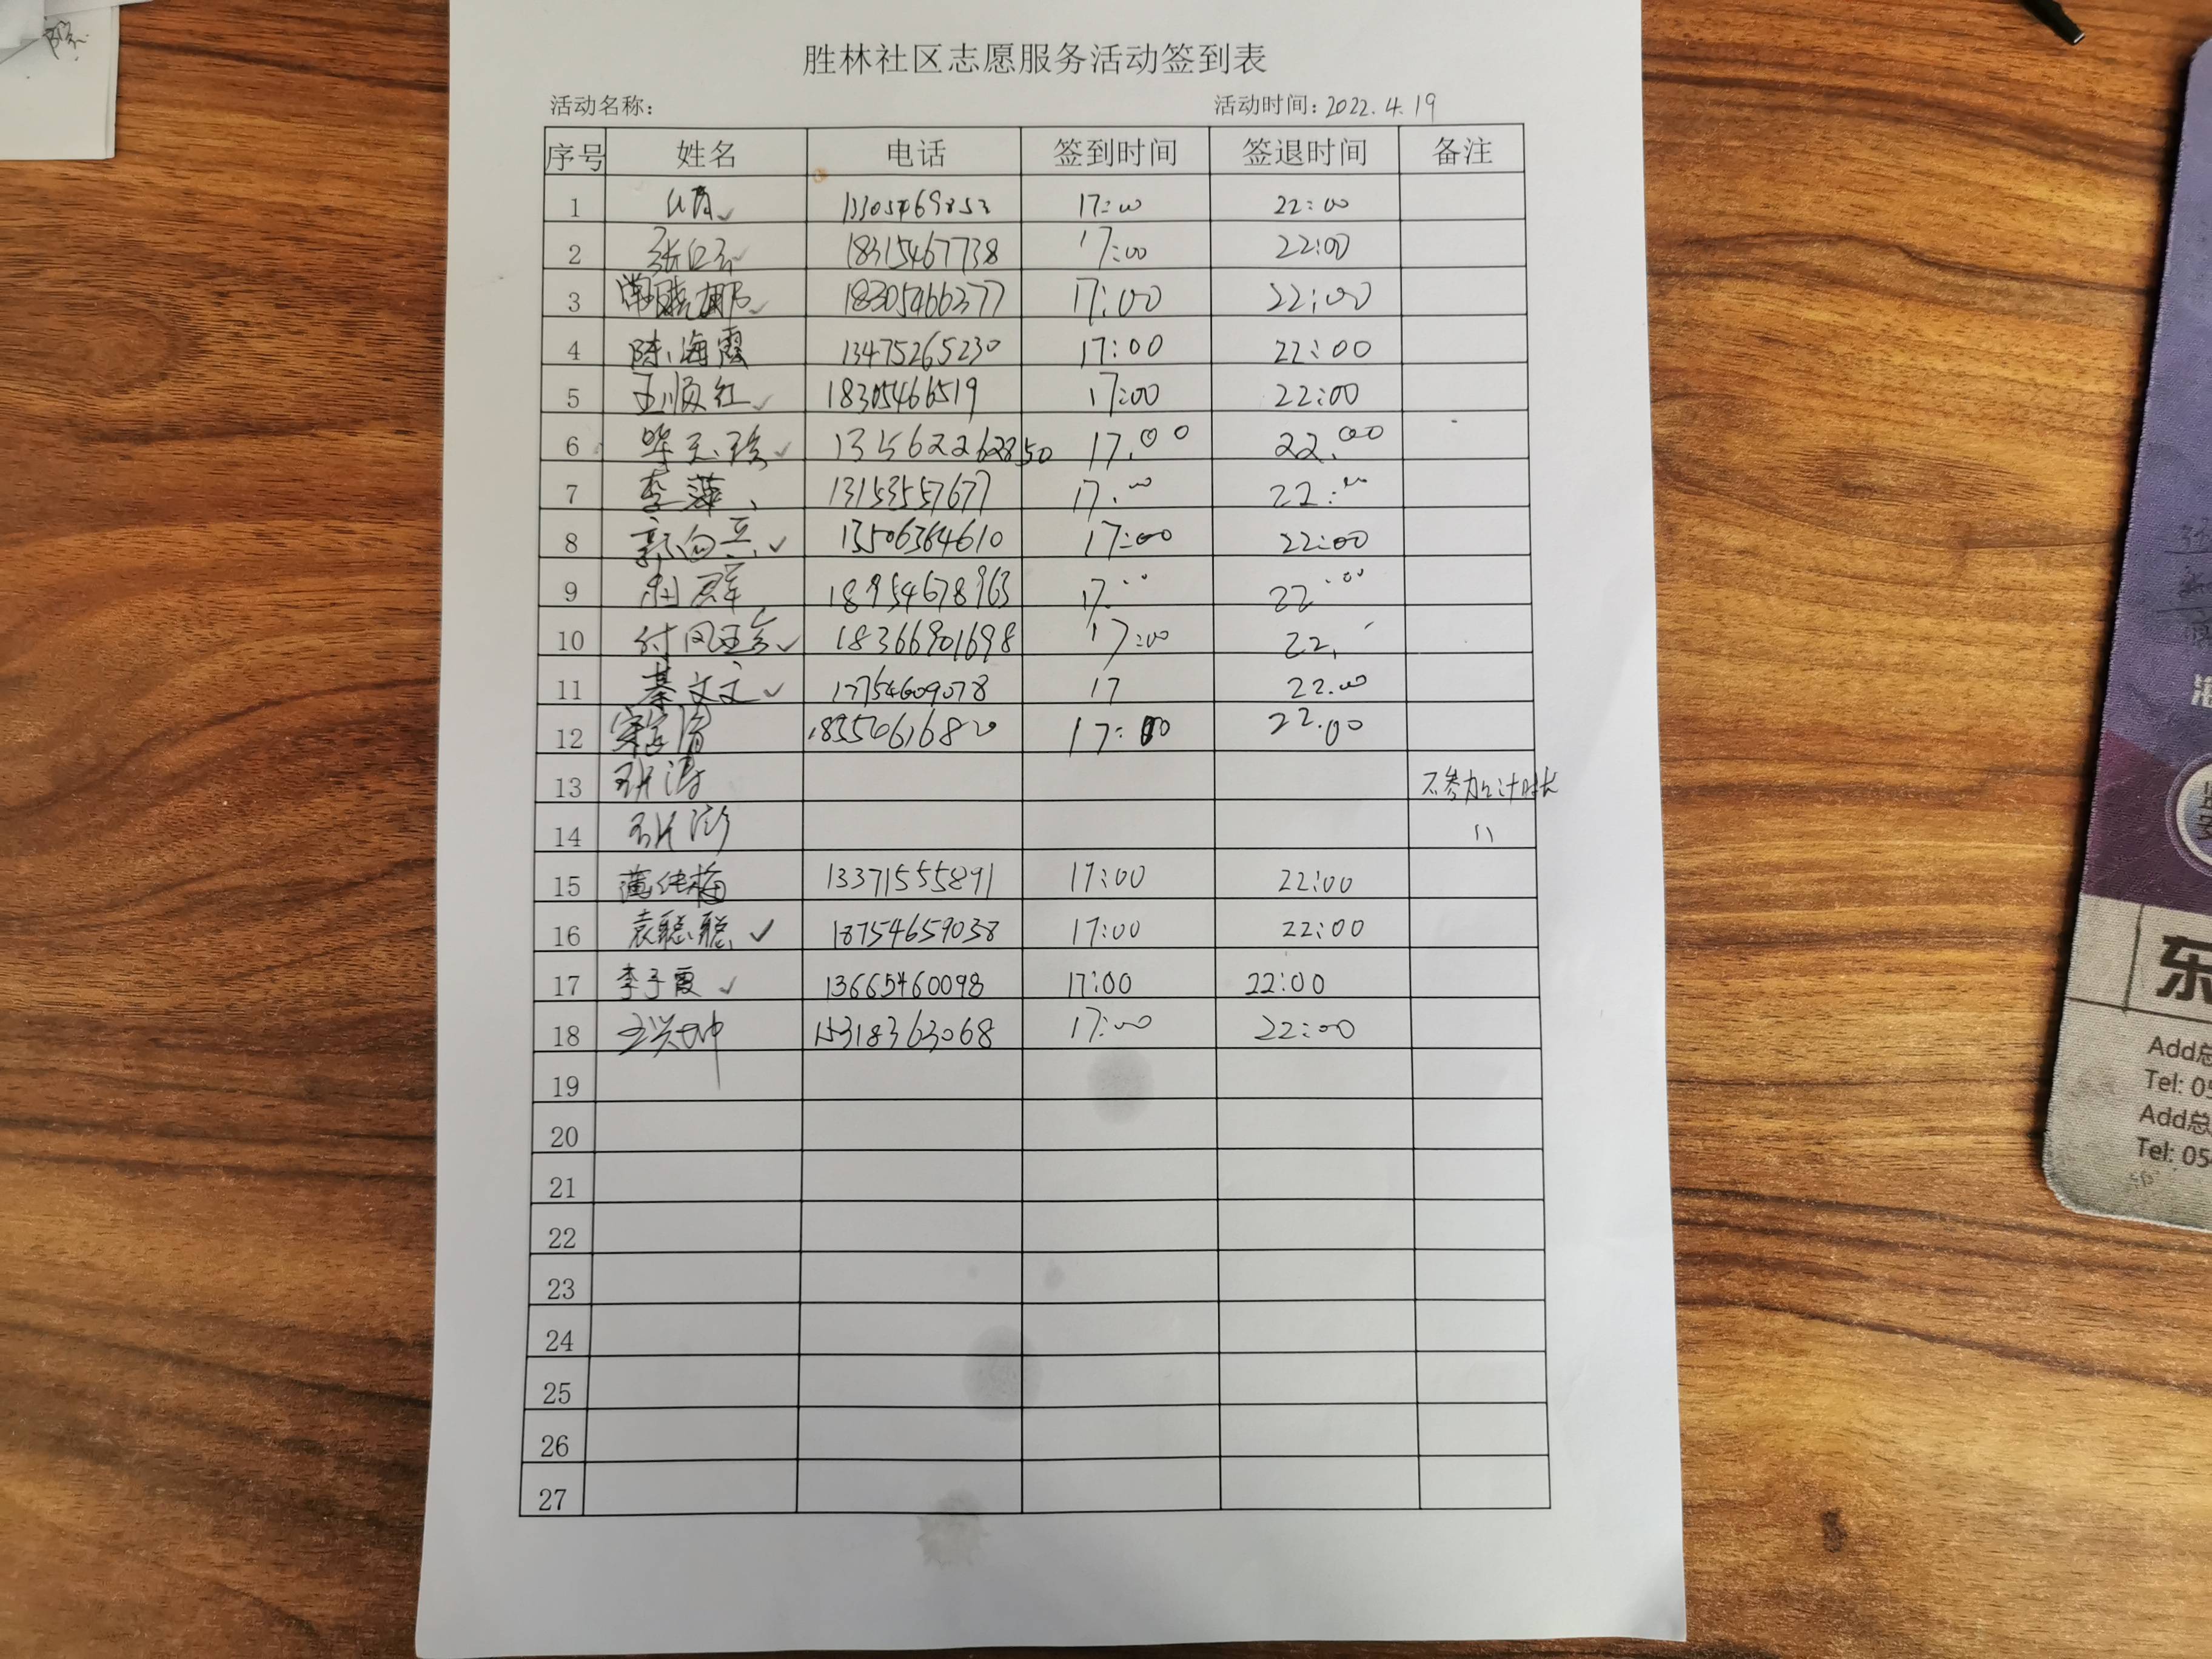 胜林社区志愿服务活动签到表
活动名称: 活动时间: 2022.4.19
序号 姓名 电话 签到时间 签退时间 备注
1 13305469853 17:00 22:00
2 18315467738 17:00 22:00
3 18305466377 17:00 22:00
4 陈海霞 13475265230 17:00 22:00
5 王顺红 18305466519 17:00 22:00
6 17.00 22.00
7 李萍 13153557677 17.00 22:00
8 郭向兵 13506364610 17:00 22:00
9 18954678963 17:00 22:00
10 18366901698 17:00 22.
11 綦文文 17754609078 17 22.00
12 17:00 22.00
13 不参加计时长
14 〃
15 13371555891 17:00 22:00
16 袁聪聪 18754659038 17:00 22:00
17 李子霞 13665460098 17:00 22:00
18 王兴坤 15318363068 17:00 22:00
19
20
21
22
23
24
25
26
27
东
Add总
Tel: 05
Add总
Tel: 05